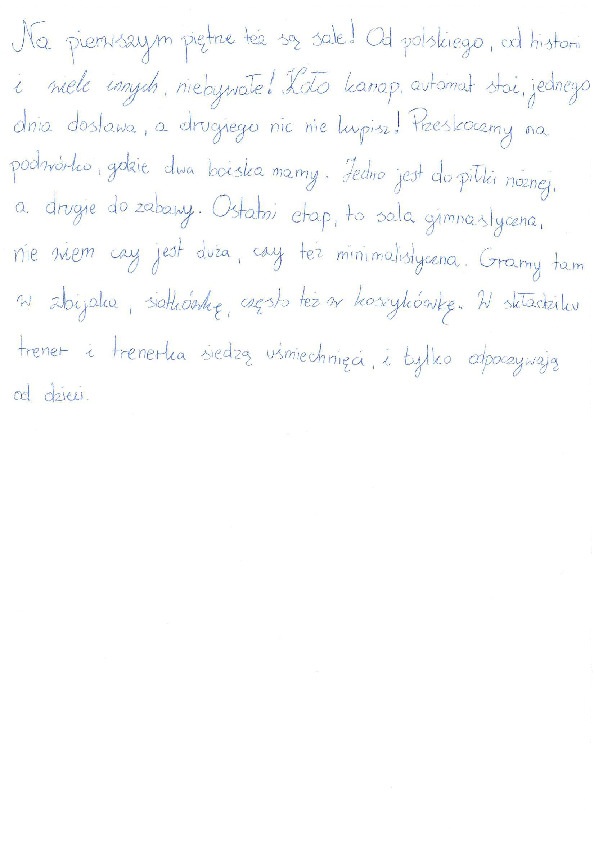 Na pierwszym piętrze też są sale! Od polskiego, od histori
i wiele innych, niebywałe! Koło kanap, automat stoi, jednego
dnia dostawa, a drugiego nic nie kupisz! Przeskoczmy na
podwórko, gdzie dwa boiska mamy. Jedno jest do piłki nożnej,
a drugie do zabawy. Ostatni etap, to sala gimnastyczna,
nie wiem czy jest duża, czy też minimalistyczna. Gramy tam
w zbijaka, siatkówkę, często też w koszykówkę. W składziku
trener i trenerka siedzą uśmiechnięci, i tylko odpoczywają
od dzieci.